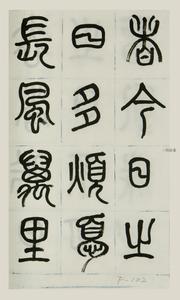 者今日之
日多煩憂
長風萬里